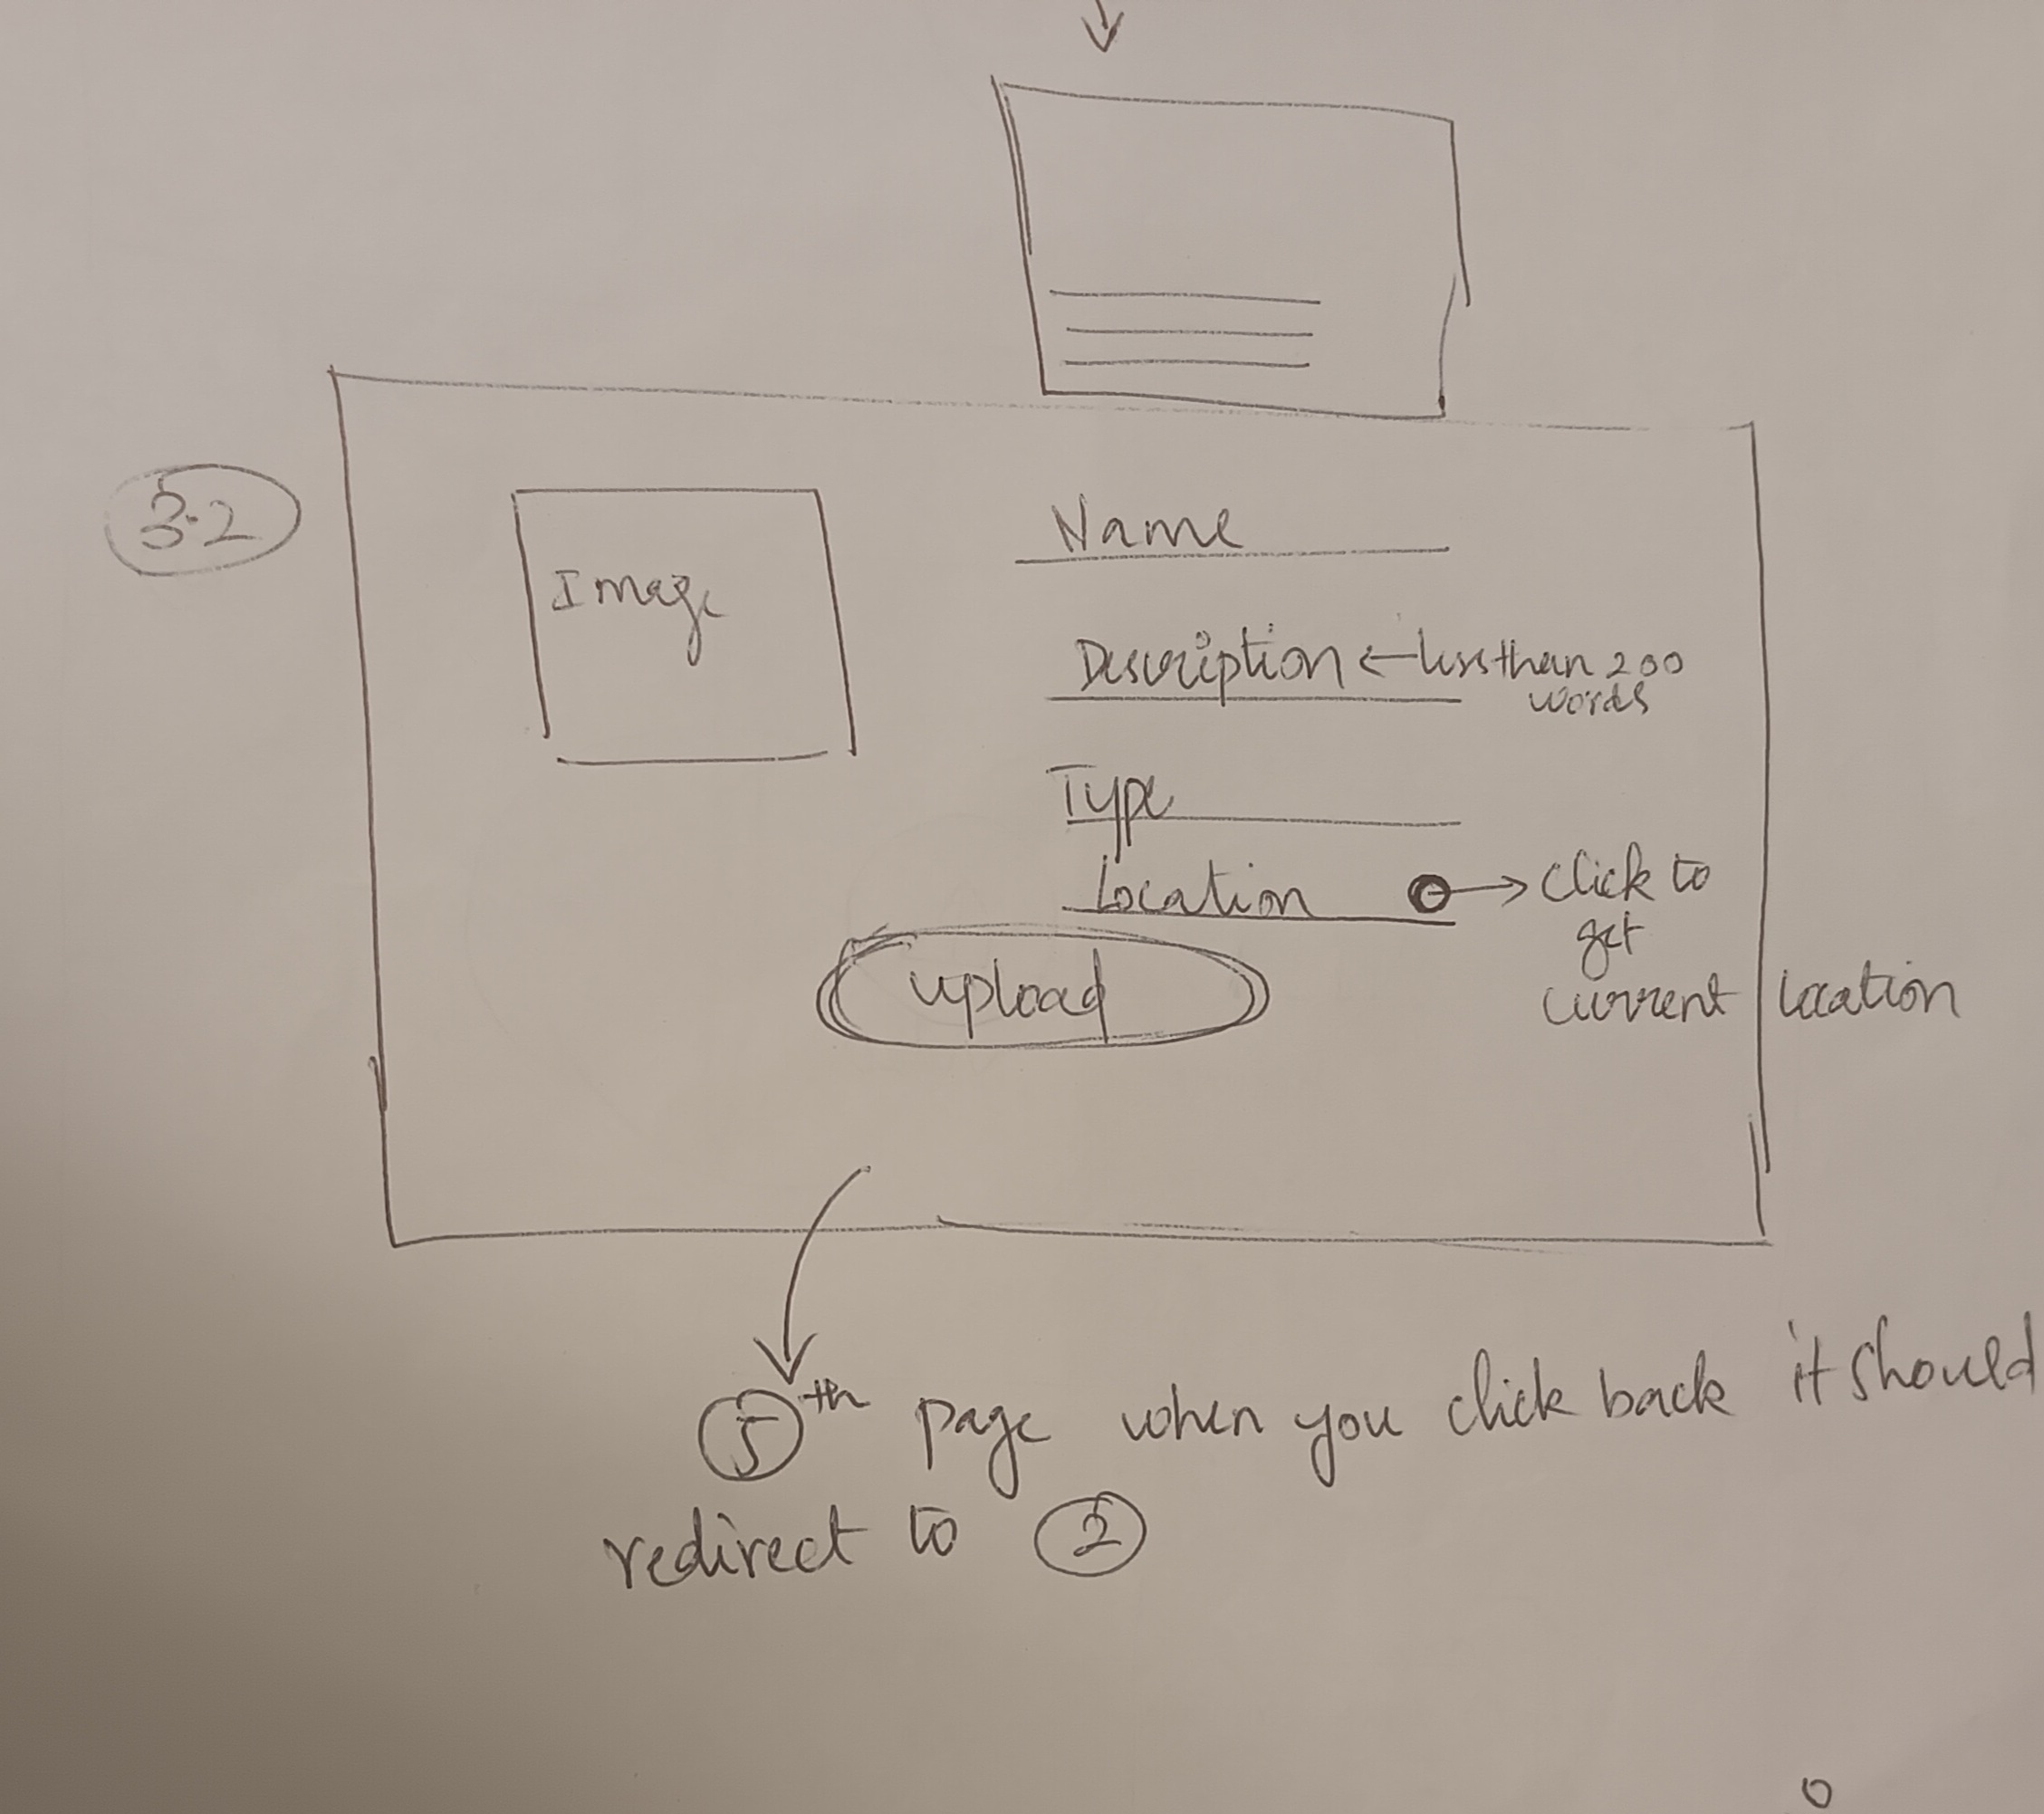 3.2
Image
Name
Description ← less than 200
words
Type
Location → click to
get
current location
upload
5th page when you click back it should
redirect to 2